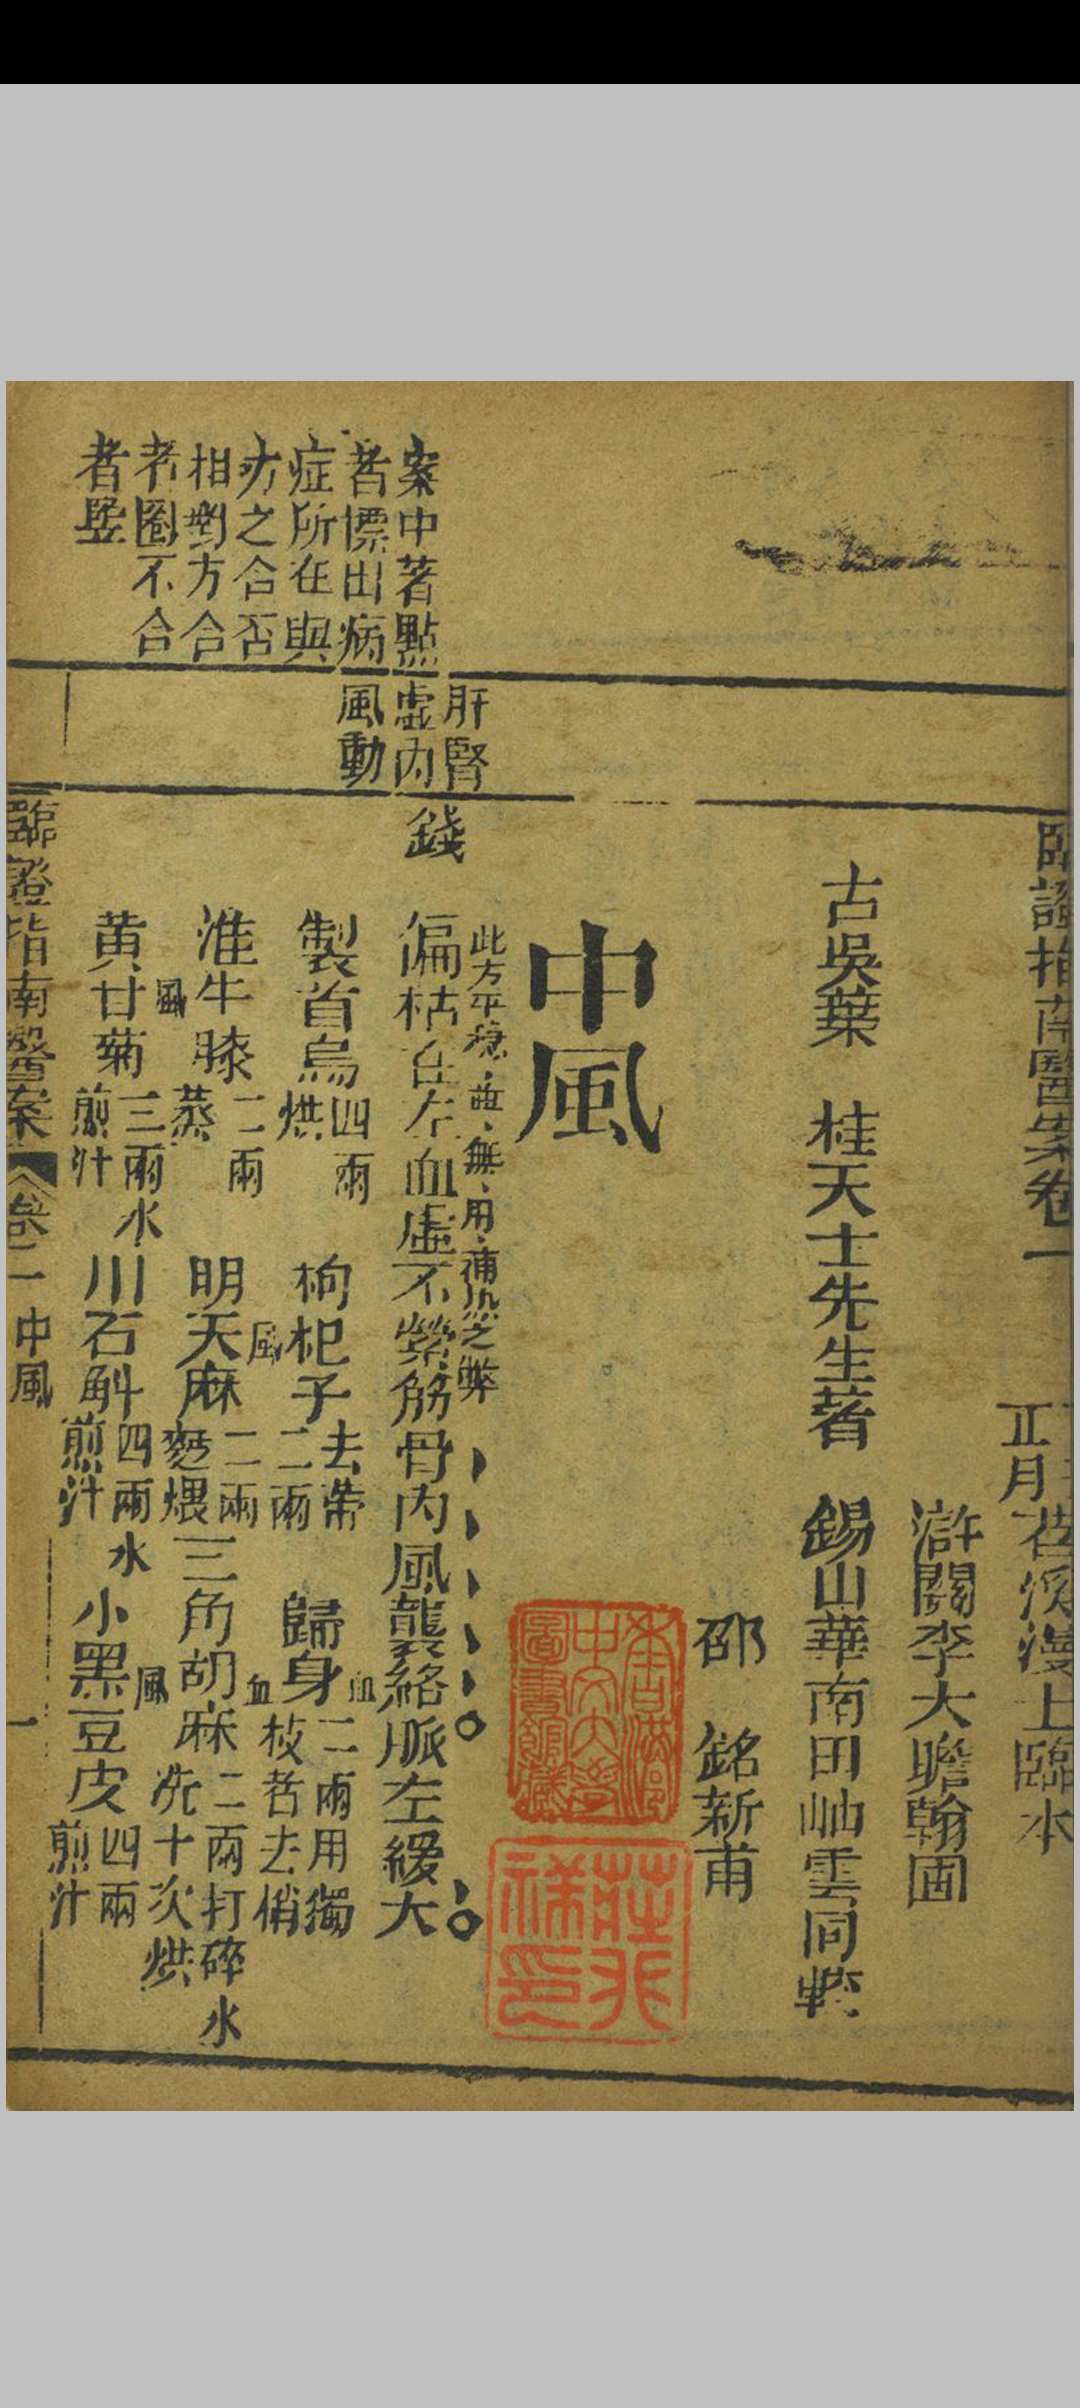 臨證指南醫案卷一
正月苕溪漫士臨本
滸關李大瞻翰圃
古吳葉 桂天士先生著 錫山華南田岫雲同較
邵 銘新甫
中風
此方平穩故無用補澀之弊
錢
偏枯在左血虛不榮筋骨內風襲絡脈左緩大
製首烏四兩烘 枸杞子去蒂二兩 歸身二兩用獨枝者去梢
淮牛膝二兩蒸 明天麻二兩麪煨 三角胡麻二兩打碎水洗十次烘
黃甘菊三兩水煎汁 川石斛四兩水煎汁 小黑豆皮四兩煎汁
風
風
血
血
風
肝腎
虛內
風動
案中著點
者標出病
症所在與
方之合否
相對方合
者圈不合
者豎
臨證指南醫案
卷一 中風
一
香港
中文大學
圖書館藏